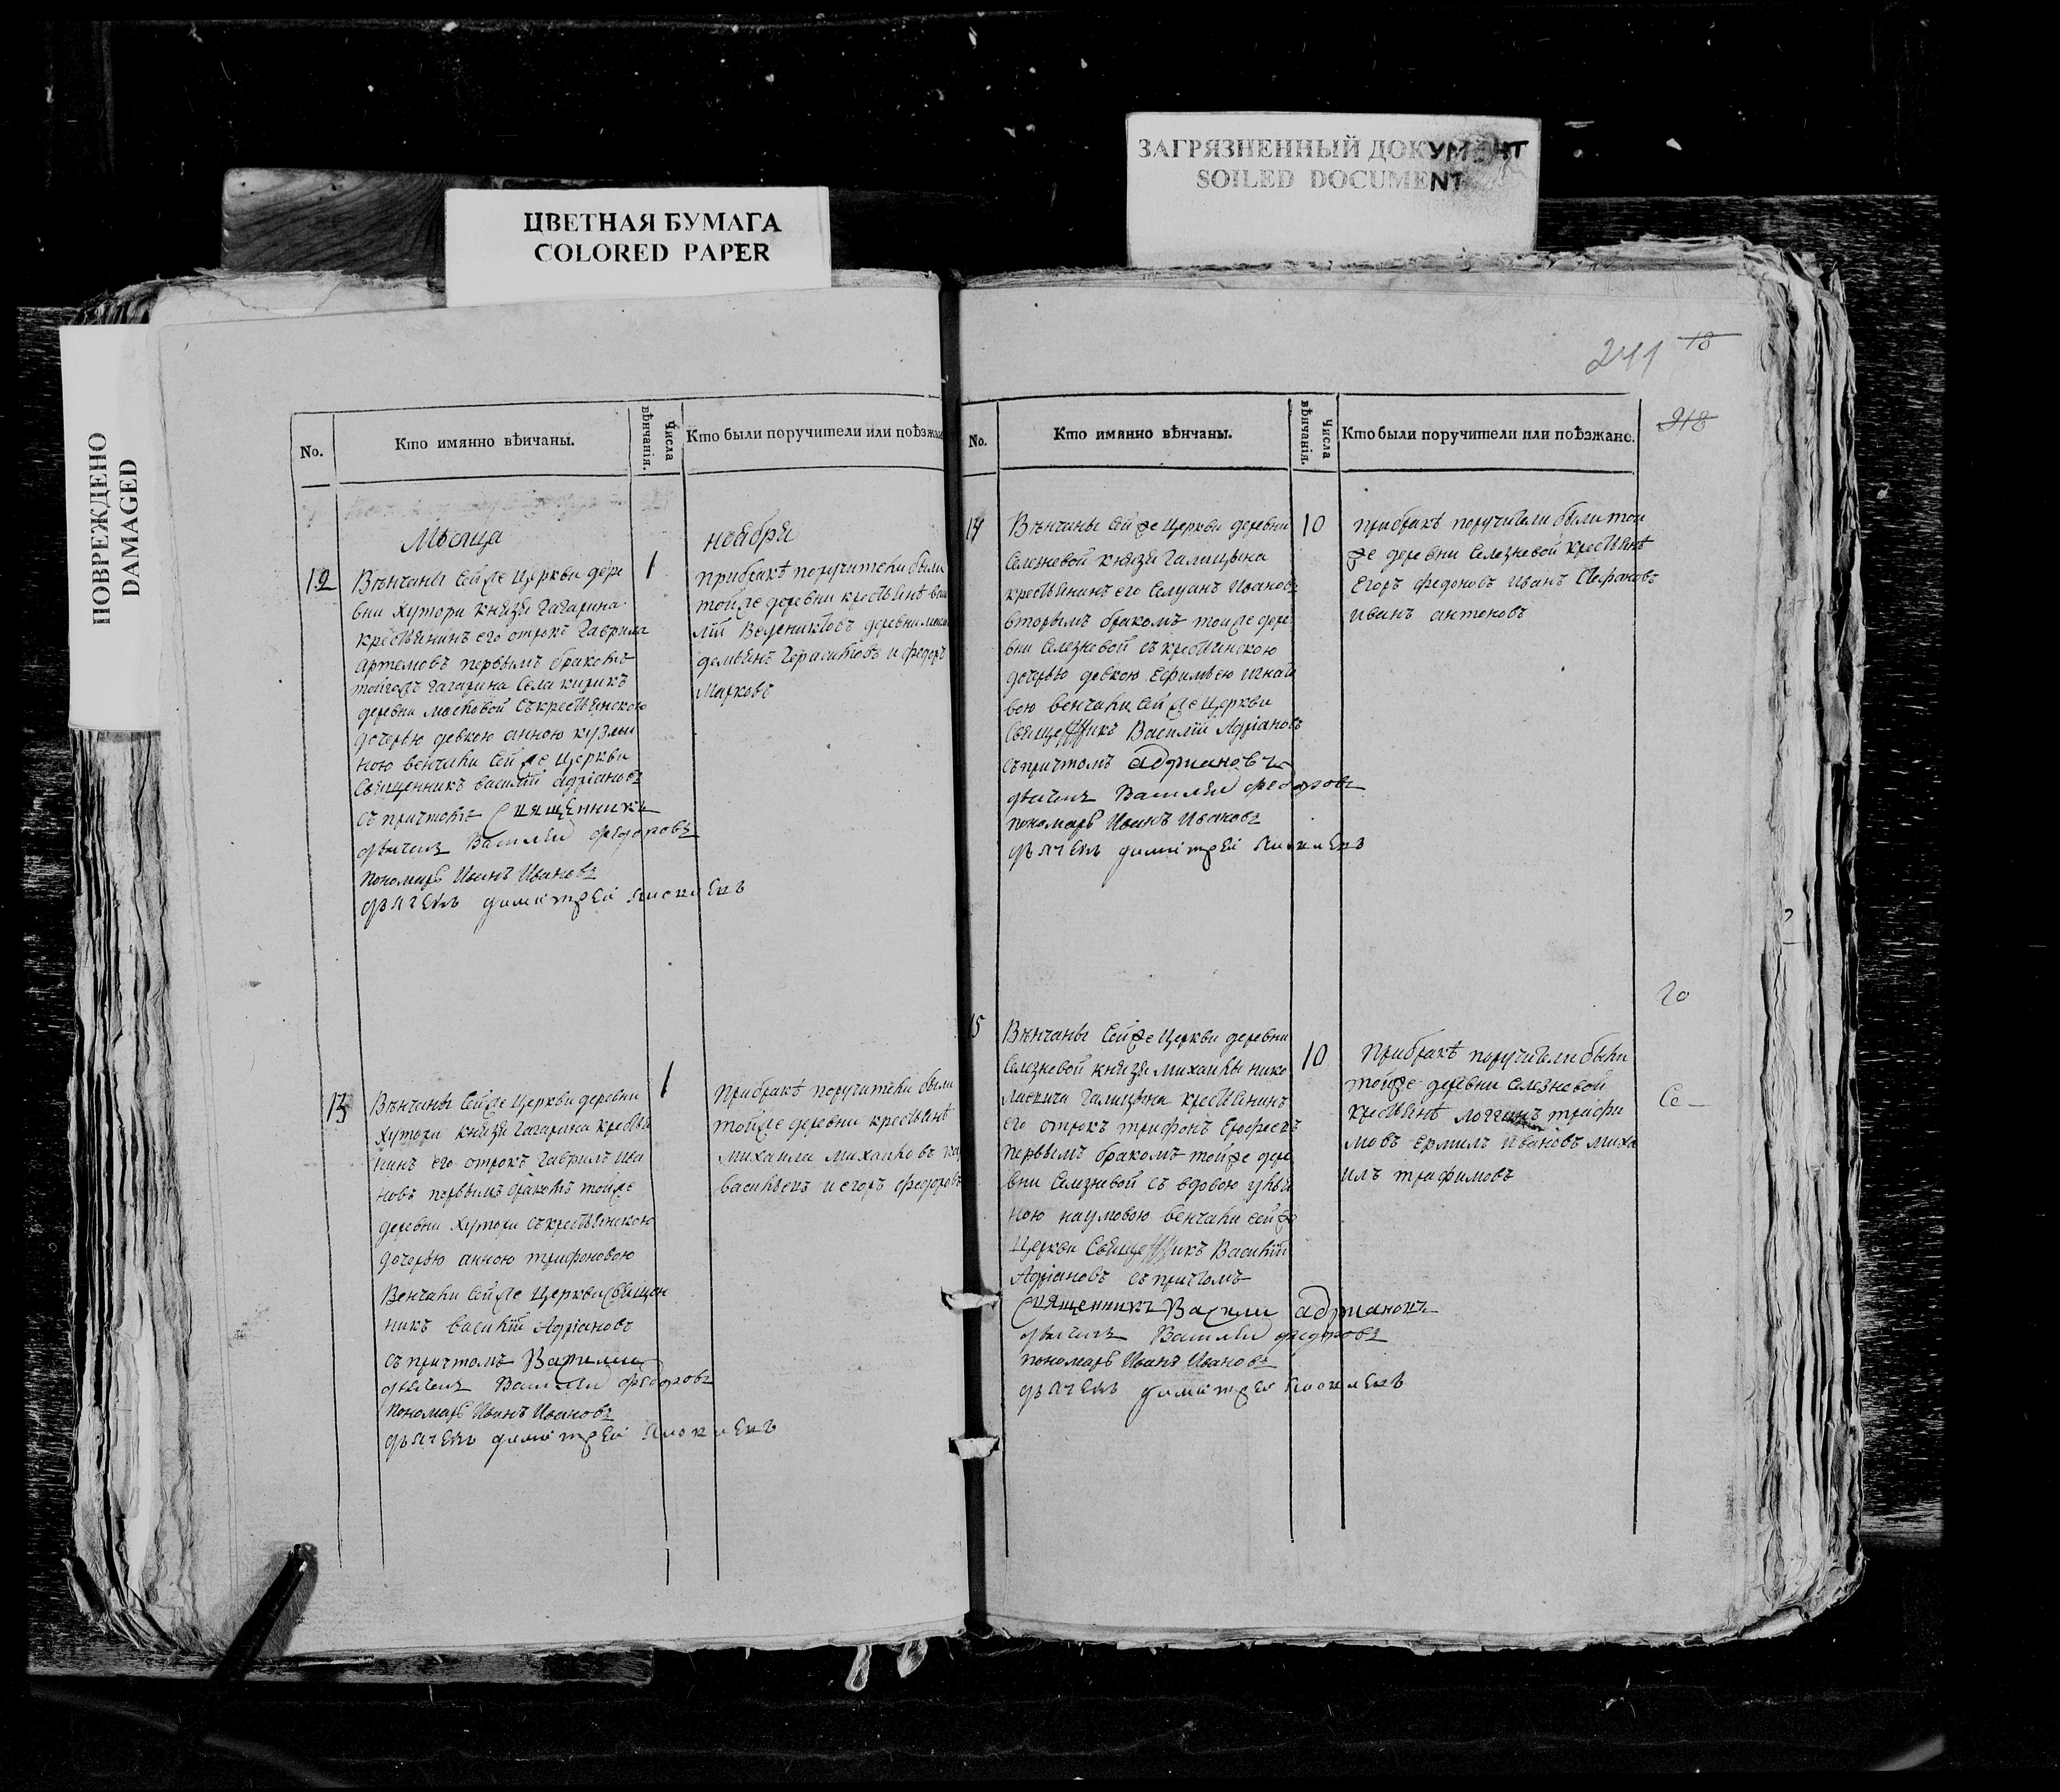 ЗАГРЯЗНЕННЫЙ ДОКУМЕНТ
SOILED DOCUMENT
ЦВЕТНАЯ БУМАГА
COLORED PAPER
ПОВРЕЖДЕНО
DAMAGED
No.
Кто имянно вѣнчаны.
Числа вѣнчанія.
Кто были поручители или поѣзжан
Мѣсяца ноября
12
Вѣнчаны сей же церкви дере
вни Хутори князя Гагарина
крестьянинъ его отрокъ Гаврила
Артемовъ первымъ бракомъ
тогожъ Гагарина села кирикъ
деревни съ крестьянскою
дочерью девкою анною кузми
ною венчали сей же церкви
священникъ василій адріановъ
съ причтомъ священникъ
дьяконъ Василей федоровъ
пономарь Иванъ Ивановъ
дьячекъ димитрей
1
при бракѣ поручители были
той же деревни крестьянѣ
лій деревни
демьянъ Герасимовъ и федоръ
Марковъ
13
Вѣнчаны сей же церкви деревни
Хутори князя Гагарина крестья
нинъ его отрокъ Гаврилъ Ива
новъ первымъ бракомъ той же
деревни Хутори съ крестьянскою
дочерью анною трифоновою
Венчали сей же церкви священ
никъ василій Адріановъ
съ причтомъ Василии
дьяконъ Василей федоровъ
пономарь Иванъ Ивановъ
дьячекъ димитрей
1
При бракѣ поручители были
той же деревни крестьянѣ
михаила михаиловъ
васильевъ и егоръ федоровъ
241
18
218
No.
Кто имянно вѣнчаны.
Числа вѣнчанія.
Кто были поручители или поѣзжане.
14
Вѣнчаны сей же церкви деревни
Селезневой князя Галицына
крестьянинъ его Селуанъ Ивановъ
вторымъ бракомъ той же дере
вни Селезневой съ крестьянскою
дочерью девкою Ефимьею
вою венчали сей же церкви
священникъ Василій Адріановъ
съ причтомъ адриановъ
дьяконъ Василей федоровъ
пономарь Иванъ Ивановъ
дьячекъ димитрей
10
при бракѣ поручители были той
же деревни Селезневой крестьянѣ
Егоръ иванъ Стефановъ
иванъ антоновъ
15
Вѣнчаны сей же церкви деревни
Селезневой князя Михаилы Нико
лаевича Галицына крестьянинъ
его отрокъ трифонъ Ерофеевъ
первымъ бракомъ той же дере
вни Селезневой съ вдовою улья
ною наумовою венчали сей же
церкви священникъ Василій
Адріановъ съ причтомъ
священникъ Василии адриановъ
дьяконъ Василей федоровъ
пономарь Иванъ Ивановъ
дьячекъ димитрей
10
При бракѣ поручители были
той же деревни Селезневой
крестьянѣ логгинъ трифи
мовъ ермилъ ивановъ миха
илъ трафимовъ